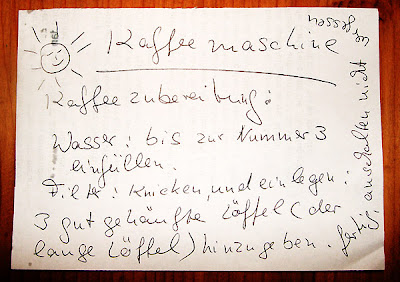 Kaffeemaschine
Kaffeezubereitung:
Wasser: bis zur Nummer 3
einfüllen.
Filter: Knicken, und einlegen:
3 gut gehäufte Löffel (der
lange Löffel) hinzugeben.
fertig. anschalten nicht
vergessen